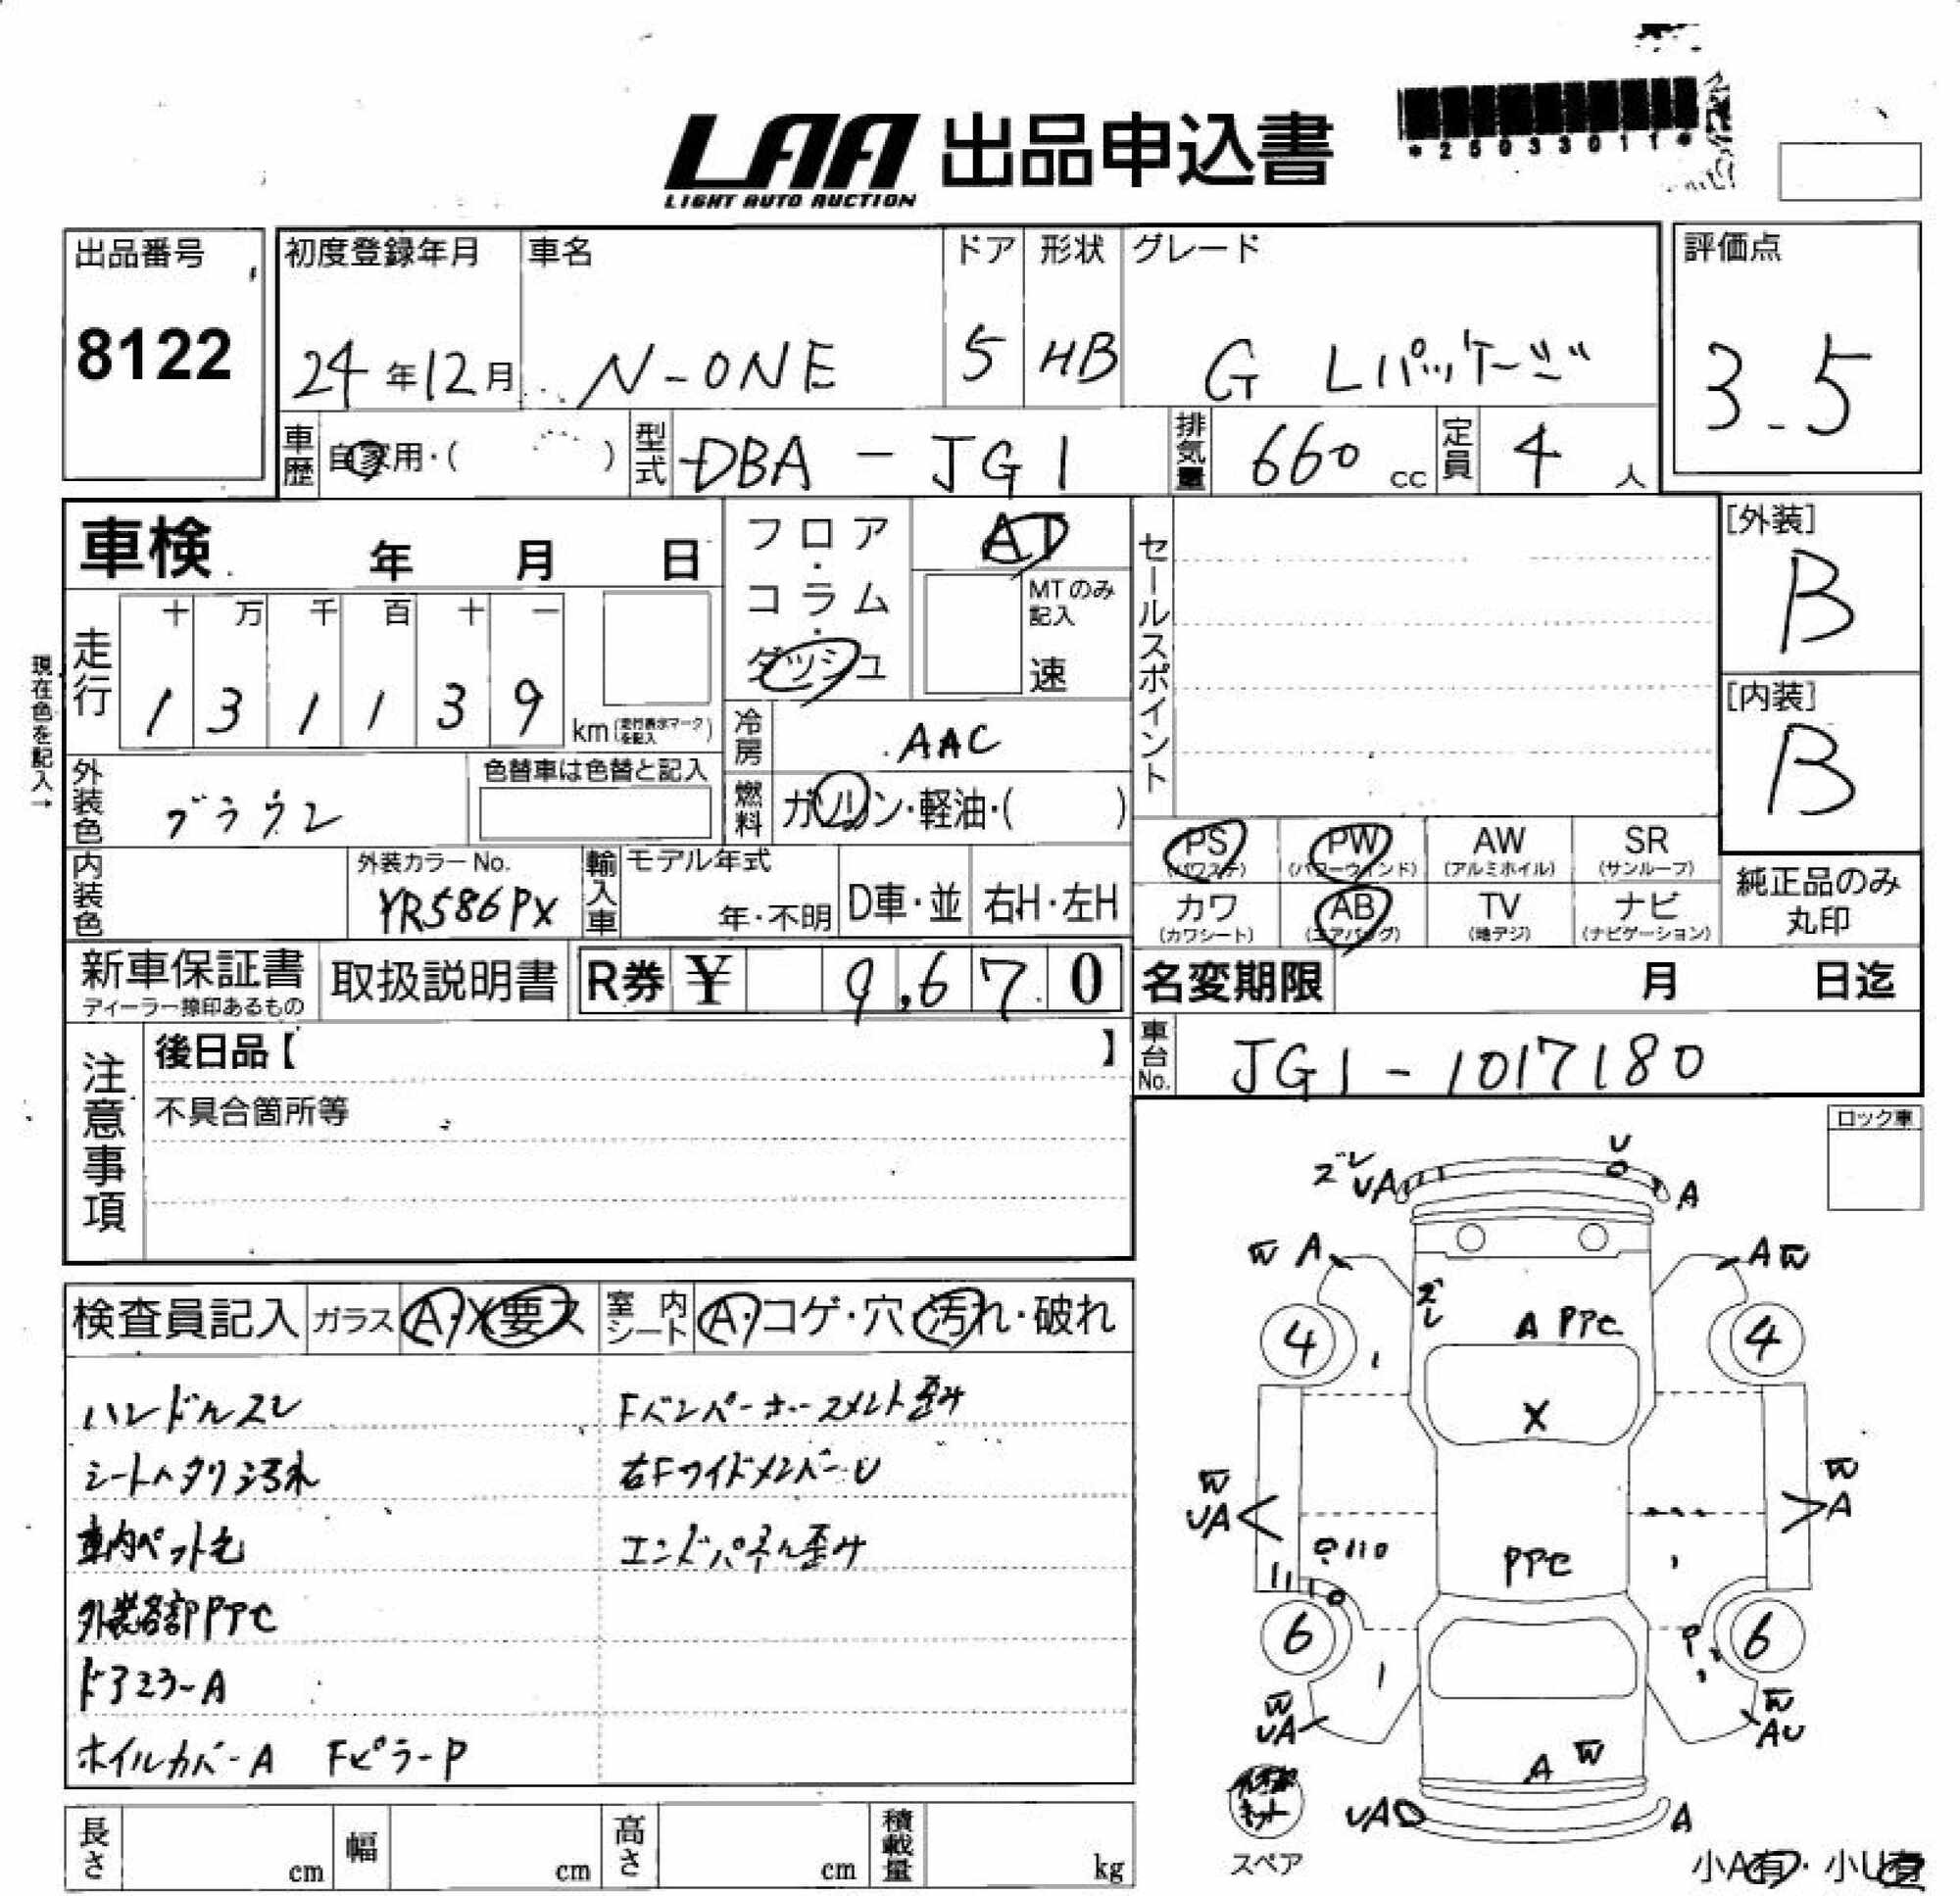 LAA 出品申込書
LIGHT AUTO AUCTION
*25033011*
出品番号
8122
初度登録年月
24年12月
車名
N-ONE
ドア
5
形状
HB
グレード
G Lパッケージ
評価点
3.5
車歴
自家用・( )
型式
DBA-JG1
排気量
660 cc
定員
4人
車検 年 月 日
フロア・コラム・ダッシュ
AT
MTのみ記入
速
セールスポイント
[外装]
B
[内装]
B
現在色を記入→
走行
十 万 千 百 十 一
1 3 1 1 3 9
km (走行表示マークを記入)
冷房
AAC
外装色
ブラウン
色替車は色替と記入
燃料
ガソリン・軽油・( )
内装色
外装カラーNo.
YR586PX
輸入車
モデル年式
年・不明
D車・並
右H・左H
PS (パワステ)
PW (パワーウインド)
AW (アルミホイル)
SR (サンルーフ)
カワ (カワシート)
AB (エアバッグ)
TV (地デジ)
ナビ (ナビゲーション)
純正品のみ丸印
新車保証書
ディーラー捺印あるもの
取扱説明書
R券 ¥ 9,670
名変期限 月 日迄
車台No.
JG1-1017180
注意事項
後日品【 】
不具合箇所等
ロック車
検査員記入
ガラス
A・X要ス
室内シート
A・コゲ・穴・汚れ・破れ
ハンドルスレ
シートヘタリ汚れ
車内ペット毛
外装各部PPC
ドアミラーA
ホイルカバーA FピラーP
Fバンパーホースメント歪み
右FサイドメンバーU
エンドパネル歪み
ズレ
UA
U
A
W A
A W
ズレ
A PPC
4
4
X
W
UA
W
A
PPC
6
6
P
W
UA
W
AU
A W
UA
A
キット
スペア
小A有・小U有
長さ cm
幅 cm
高さ cm
積載量 kg